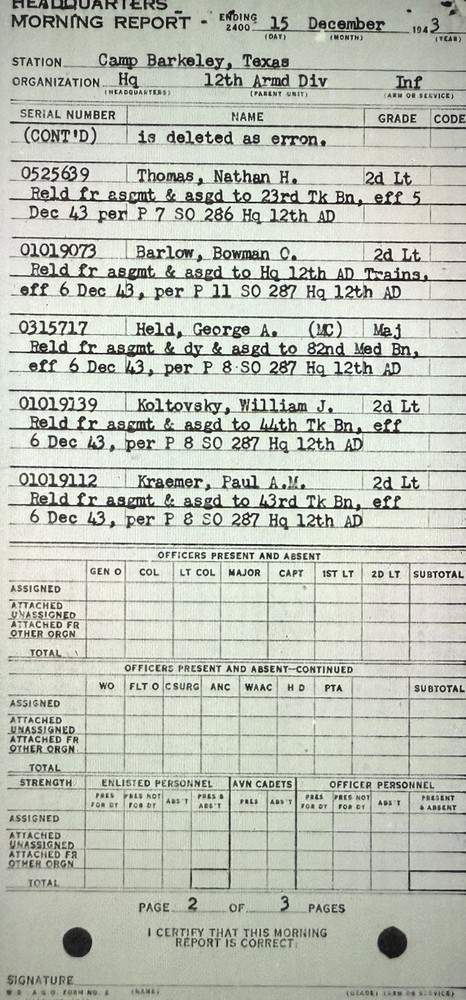 HEADQUARTERS
MORNING REPORT - ENDING 2400 15 December 1943
(DAY) (MONTH) (YEAR)
STATION Camp Barkeley, Texas
ORGANIZATION Hq 12th Armd Div Inf
(HEADQUARTERS) (PARENT UNIT) (ARM OR SERVICE)
SERIAL NUMBER NAME GRADE CODE
(CONT'D) is deleted as erron.
0525639 Thomas, Nathan H. 2d Lt
Reld fr asgmt & asgd to 23rd Tk Bn, eff 5
Dec 43 per P 7 SO 286 Hq 12th AD
01019073 Barlow, Bowman C. 2d Lt
Reld fr asgmt & asgd to Hq 12th AD Trains,
eff 6 Dec 43, per P 11 SO 287 Hq 12th AD
0315717 Held, George A. (MC) Maj
Reld fr asgmt & dy & asgd to 82nd Med Bn,
eff 6 Dec 43, per P 8 SO 287 Hq 12th AD
01019139 Koltovsky, William J. 2d Lt
Reld fr asgmt & asgd to 44th Tk Bn, eff
6 Dec 43, per P 8 SO 287 Hq 12th AD
01019112 Kraemer, Paul A.M. 2d Lt
Reld fr asgmt & asgd to 43rd Tk Bn, eff
6 Dec 43, per P 8 SO 287 Hq 12th AD
OFFICERS PRESENT AND ABSENT
GEN O COL LT COL MAJOR CAPT 1ST LT 2D LT SUBTOTAL
ASSIGNED
ATTACHED
UNASSIGNED
ATTACHED FR
OTHER ORGN
TOTAL
OFFICERS PRESENT AND ABSENT—CONTINUED
WO FLT O C SURG ANC WAAC H D PTA SUBTOTAL
ASSIGNED
ATTACHED
UNASSIGNED
ATTACHED FR
OTHER ORGN
TOTAL
STRENGTH ENLISTED PERSONNEL AVN CADETS OFFICER PERSONNEL
PRES FOR DY PRES NOT FOR DY ABS'T PRES & ABS'T PRES ABS'T PRES FOR DY PRES NOT FOR DY ABS'T PRESENT & ABSENT
ASSIGNED
ATTACHED
UNASSIGNED
ATTACHED FR
OTHER ORGN
TOTAL
PAGE 2 OF 3 PAGES
I CERTIFY THAT THIS MORNING
REPORT IS CORRECT:
SIGNATURE
W.D. A.G.O. FORM NO. (NAME) (GRADE) (ARM OR SERVICE)